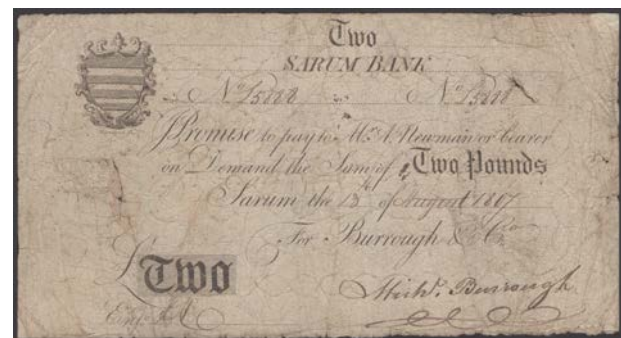 Two
SARUM BANK
No. No.
I Promise to pay to Mr. A. Newman or bearer
on Demand the Sum of Two Pounds
Sarum the 18 of August 1807
For Burrough & Co.
£ Two
Michl. Burrough